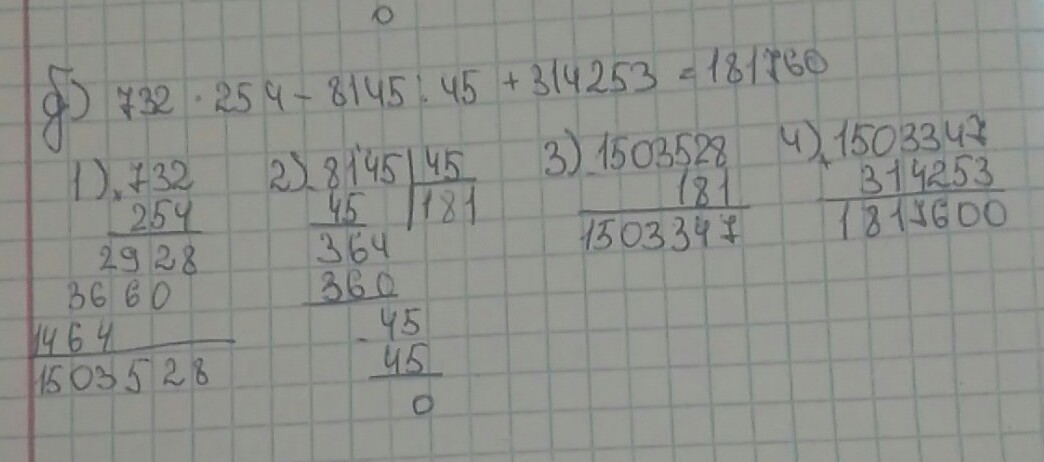 0
б) 732 · 254 - 8145 : 45 + 314253 = 181760
1) × 732
254
2928
3660
1464
1503528
2) - 8145 | 45
45 | 181
364
360
- 45
45
0
3) - 1503528
181
1503347
4) + 1503347
314253
1817600